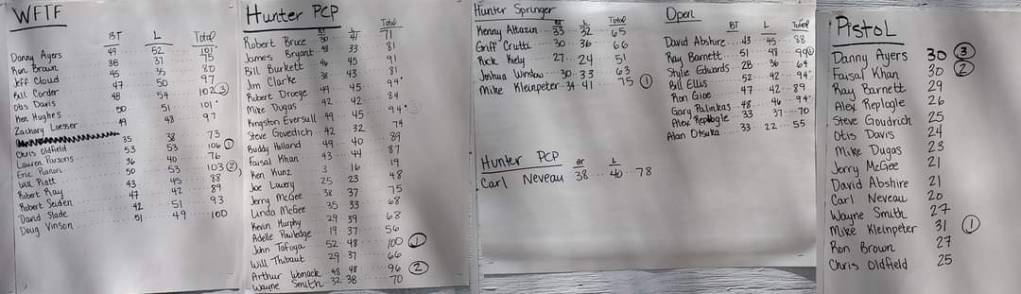 WFTF
BT L Total
Danny Ayers 49 52 101
Ron Brown 38 37 75
Jeff Cloud 45 35 80
Bill Corder 47 50 97
Otis Davis 48 54 102 ③
Ken Hughes 50 51 101
Zachary Loesser 49 48 97
35 38 73
Chris Oldfield 53 53 106 ①
Lauren Parsons 36 40 76
Eric 50 53 103 ②
Will Piatt 43 45 88
Robert Ray 47 42 89
Robert Seiden 42 51 93
David Slade
Doug Vinson 51 49 100
Hunter PCP
BT L Total
Robert Bruce 30 41 71
James Bryant 48 33 81
Bill Burkett 46 45 91
Jim Clarke 38 43 81
Robert Droege 49 45 94
Mike Dugas 42 42 84
Kingston Eversull 49 45 94
Steve Govedich 42 32 74
Buddy Holland 49 40 89
Faisal Khan 43 44 87
Ken Kunz 3 16 19
Joe Lowry 25 23 48
Jerry McGee 38 37 75
Linda McGee 35 33 68
Kevin Murphy 29 39 68
Adelle 19 37 56
John Tafoya 52 48 100 ①
Will Thibaut 29 37 66
Arthur Womack 48 48 96 ②
Wayne Smith 32 38 70
Hunter Springer
BT L Total
Kenny Altazin 33 32 65
Griff Crutti 30 36 66
Rick 27 24 51
Joshua Winslow 30 33 63
Mike Kleinpeter 34 41 75 ①
Hunter PCP
BT L
Carl Neveau 38 40 78
Open
BT L Total
David Abshire 43 45 88
Ray Barnett 51 48 99 ①
Stylie Edwards 28 36 64
Bill Ellis 52 42 94
Ron Gioe 47 42 89
Gary Palinkas 48 46 94
Alex Replogle 33 37 70
Alan Otsuka 33 22 55
Pistol
Danny Ayers 30 ③
Faisal Khan 30 ②
Ray Barnett 29
Alex Replogle 26
Steve Goudrich 25
Otis Davis 24
Mike Dugas 23
Jerry McGee 21
David Abshire 21
Carl Neveau 20
Wayne Smith 27
Mike Kleinpeter 31 ①
Ron Brown 27
Chris Oldfield 25